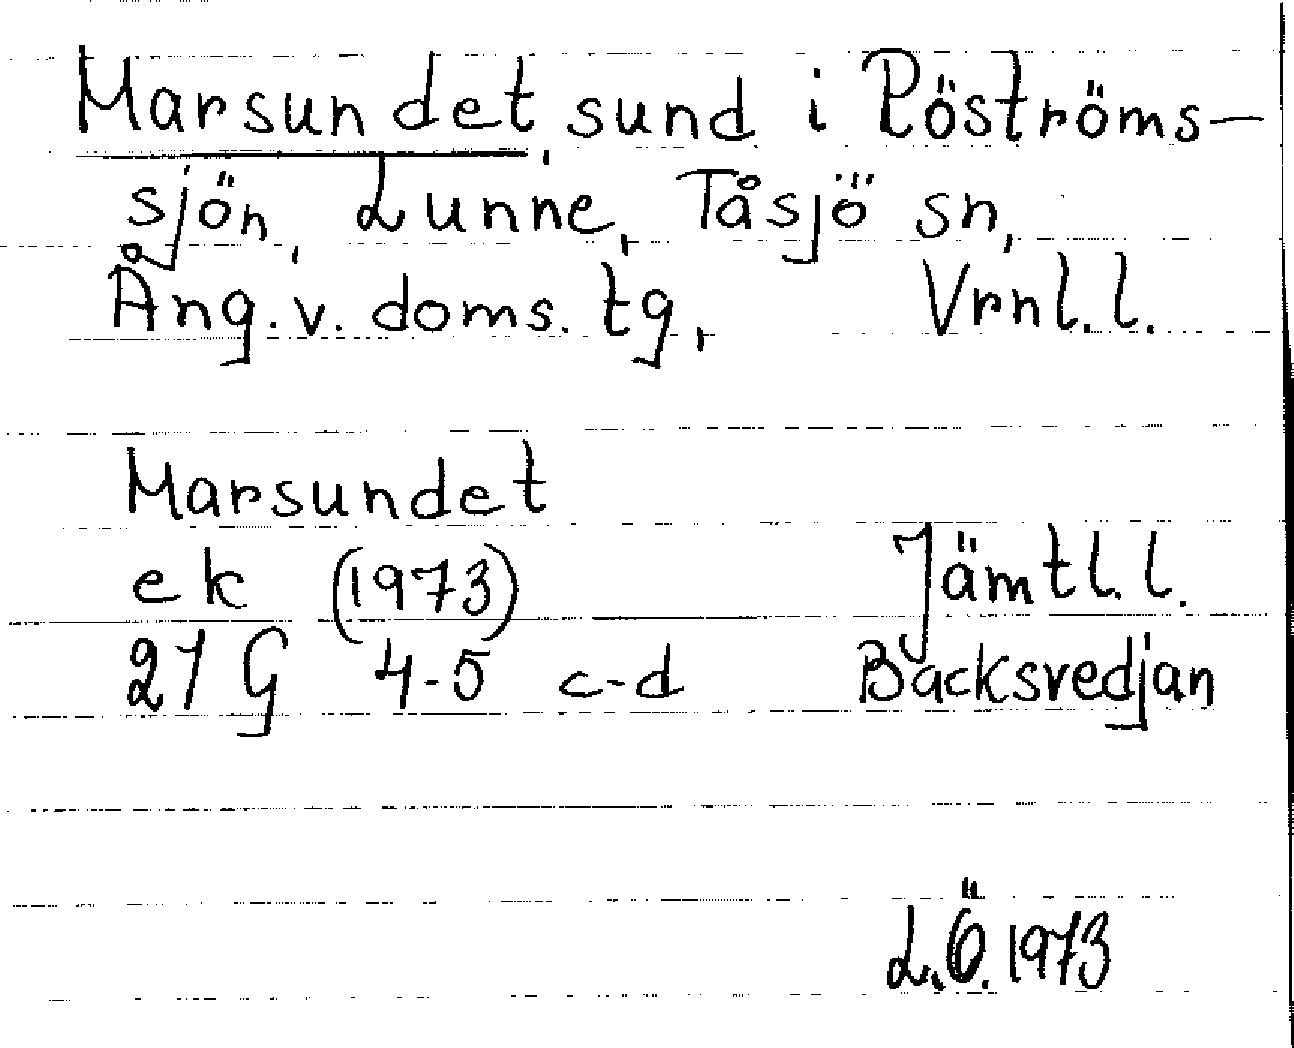 Marsundet, sund i Röströms-
sjön, Lunne, Tåsjö sn,
Ång.v. doms. tg, Vrnl.l.
Marsundet
ek (1973) Jämtl.l.
21 G 4-5 c-d Backsvedjan
L.Ö. 1973